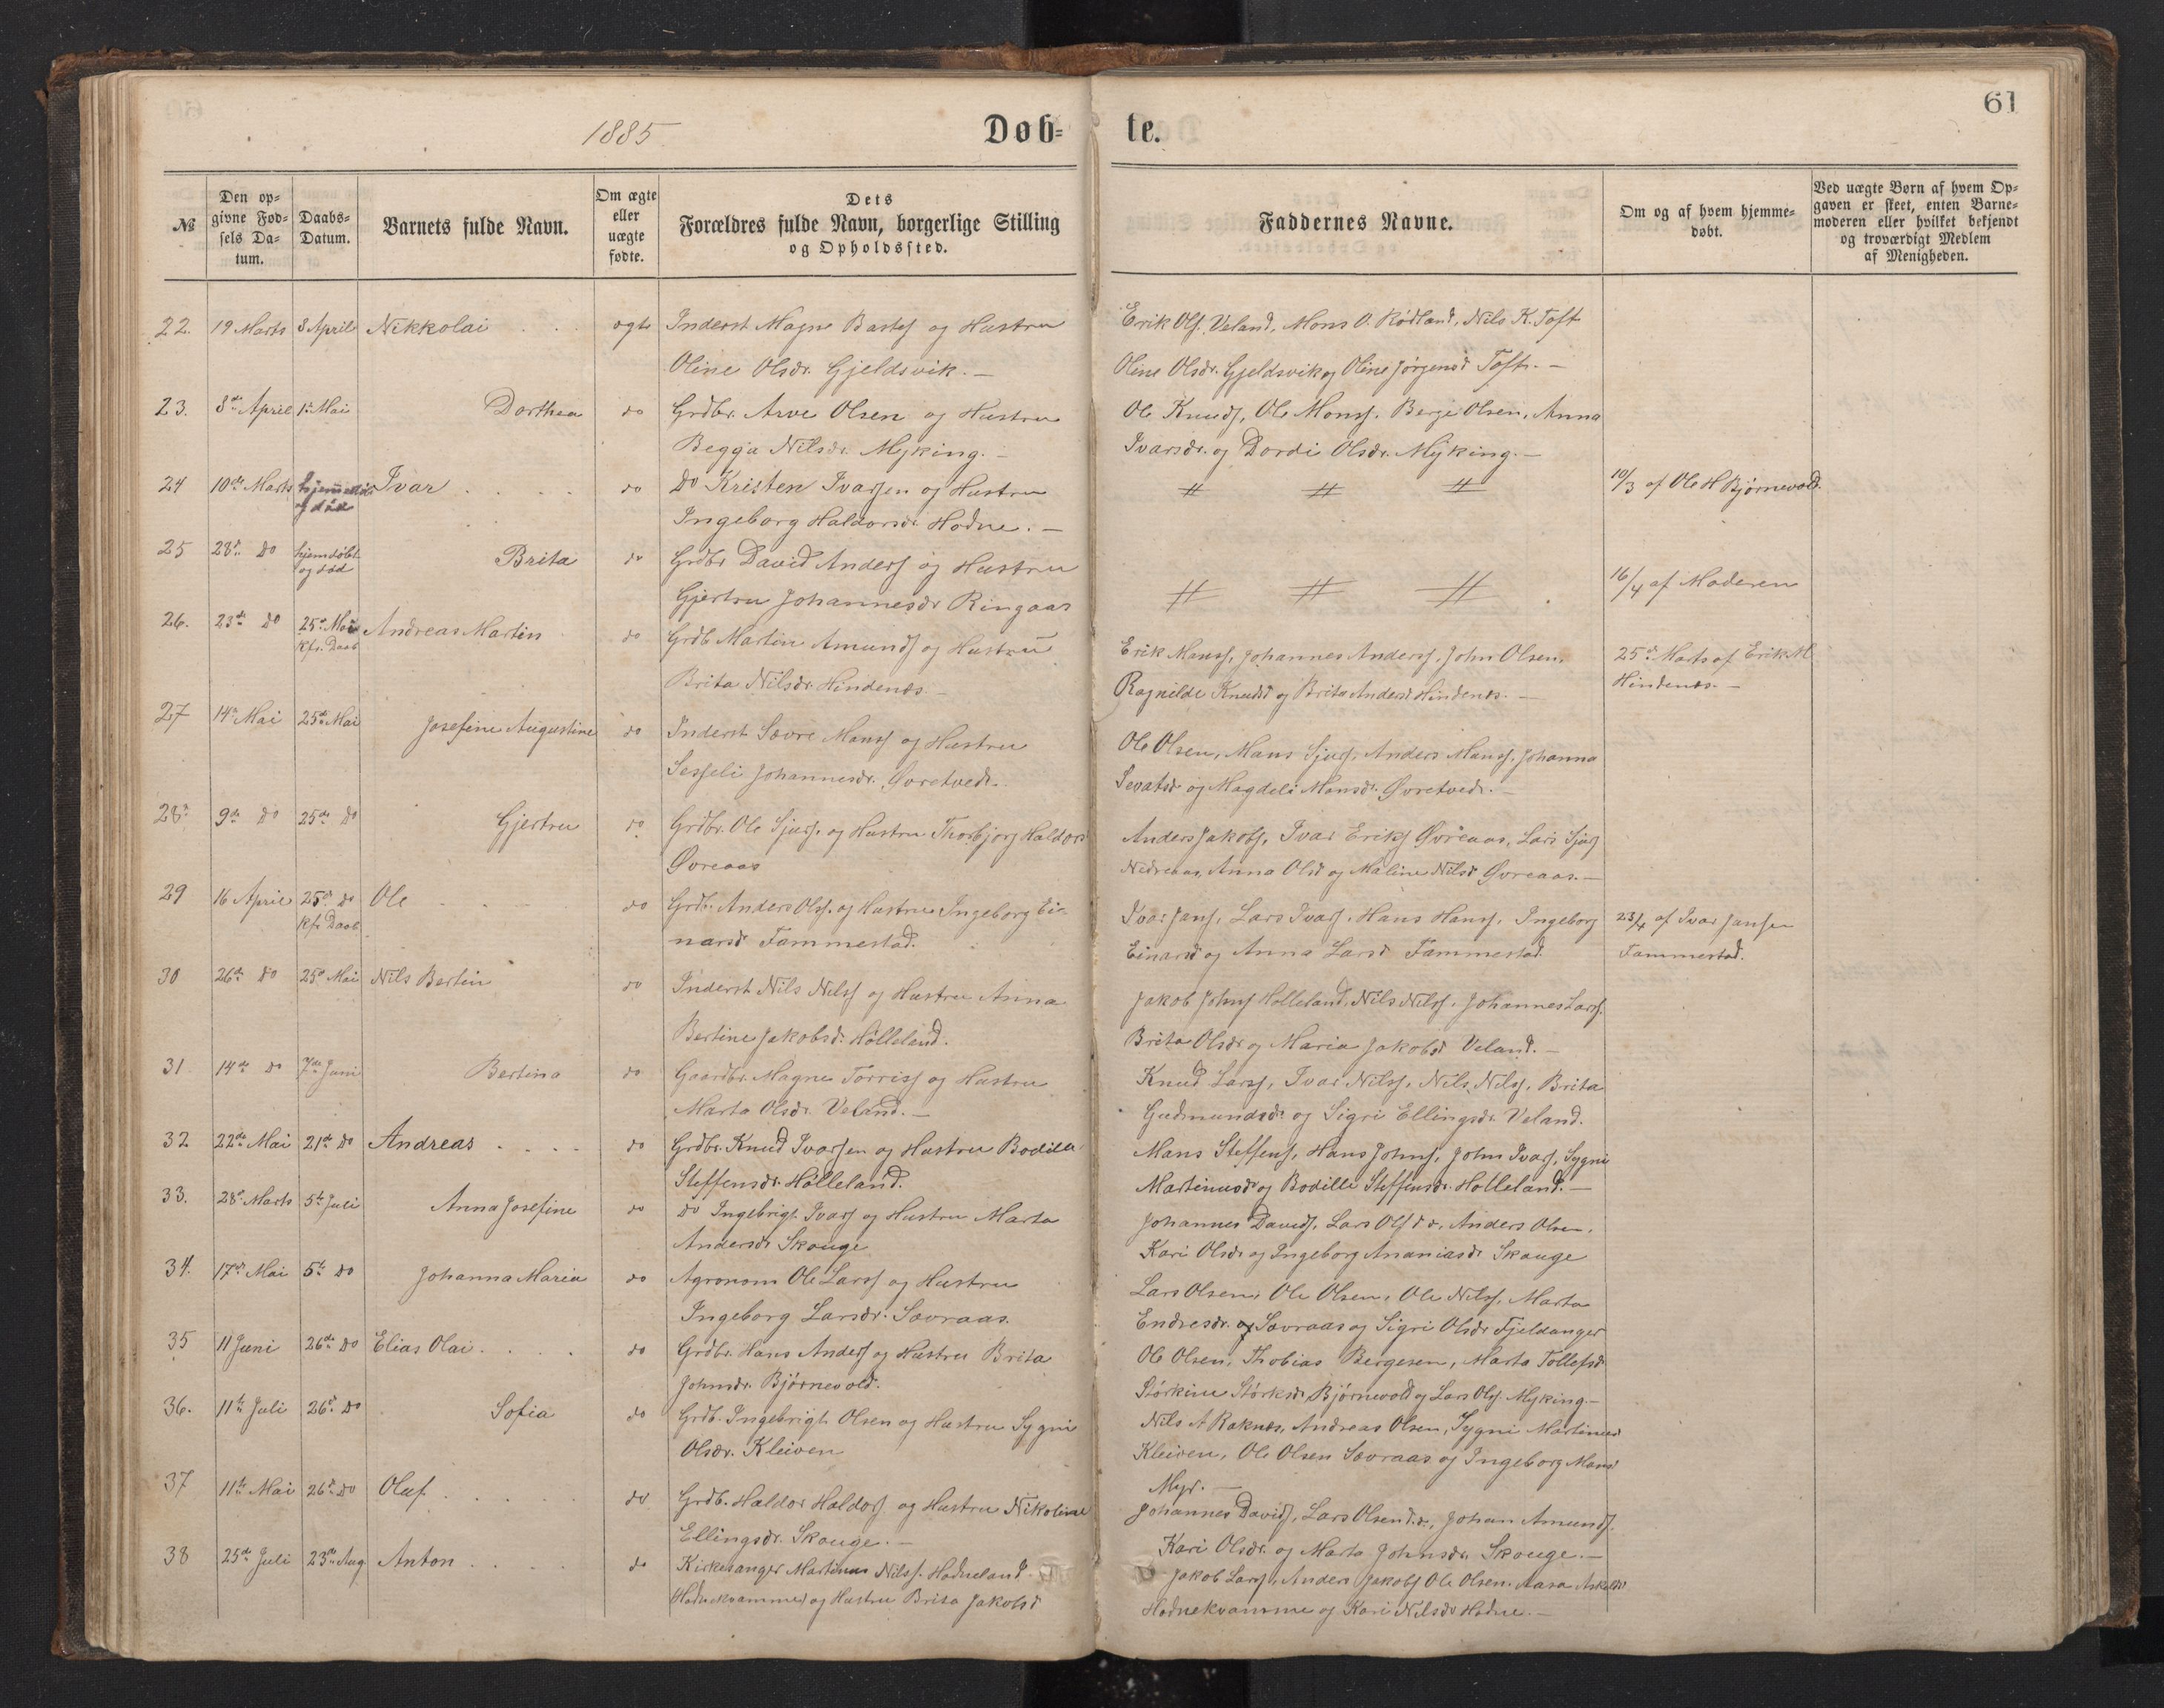 61
1885
Døb=
te.
№
Den op=
givne Fød=
sels Da=
tum.
Daabs=
Datum.
Barnets fulde Navn.
Om ægte
eller
uægte
fødte.
Dets
Forældres fulde Navn, borgerlige Stilling
og Opholdssted.
Faddernes Navne.
Om og af hvem hjemme=
døbt.
Ved uægte Børn af hvem Op=
gaven er skeet, enten Barne=
moderen eller hvilket bekjendt
og troværdigt Medlem
af Menigheden.
22. 19 Marts 3 April Nikkolai ægte Inderst Magne Bastes og Hustru
Oline Olsdr. Gjeldsvik. —
Erik Ols. Veland, Mons O. Rødland, Nils K. Toft
Oline Olsdr. Gjeldsvik og Oline Jørgensd Toft. —
23. 8de April 1ste Mai Dorthea do Grdbr. Arve Olsen og Hustru
Begga Nilsdr. Myking. —
Ole Knuds, Ole Monss. Berge Olsen, Anna
Ivarsdr. og Dordi Olsdr. Myking. —
24 10de Marts hjemmedøbt
og død
Ivar do Do Kristen Ivarsen og Hustru
Ingeborg Haldorsdr. Hodne. —
10/3 af Ole H Bjørnevold.
25 28de do hjemdøbt
og død
Brita do Grdbr David Anders og Hustru
Gjertru Johannesdr Ringaas
16/4 af Moderen
26. 23de do 25de Mai
Kfr. Daab
Andreas Martin do Grdb Martin Amunds og Hustru
Brita Nilsdr. Hindenes. —
Erik Manss, Johannes Anderss, John Olsen,
Ragnilde Knudsd og Brita Andersd Hindenes. —
25de Marts af Erik M
Hindenes. —
27 14de Mai 25de Mai Josefine Augustine do Inderst Sævre Manss og Hustru
Sesseli Johannesdr. Øvretvedt.
Ole Olsen, Mans Sjurs, Anders Manss, Johanna
Sevatsdr og Magdeli Monsdr. Øvretvedt. —
28. 9de do 25de do Gjertru do Grdbr. Ole Sjurs. og Hustru Thorbjorg Haldorsd
Øvreaas
Anders Jakobs, Ivar Eriks Øvreaas, Lars Sjurs
Nedreaas, Anna Olsd og Maline Nilsd Øvreaas. —
29 16 April 25de do
Kfr. Daab
Ole do Grdbr. Anders Olss. og Hustru Ingeborg Ei-
narsd Fammestad.
Ivar Jans, Lars Ivars, Hans Hans, Ingeborg
Einarsd og Anna Larsd Fammestad.
23/4 af Ivar Jansen
Fammestad.
30 26de do 25de Mai Nils Bertin do Inderst Nils Nilss og Hustru Anna
Bertine Jakobsdr. Hølleland.
Jakob Johns Hølleland, Nils Nilss. Johannes Larss.
Brita Olsdr og Maria Jakobsd Veland. —
31 14de do 7de Juni Bertina do Gaardbr. Magne Torriss og Hustru
Marta Olsdr. Veland. —
Knud Larss, Ivar Nilss, Nils Nilss. Brita
Gudmundsdr og Sigri Ellingsdr Veland.
32 22de Mai 21de do Andreas do Grdbr. Knud Ivarsen og Hustru Bodilla
Steffensdr. Hølleland.
Mans Steffens, Hans Johns, John Ivars, Sygni
Martinusdr og Bodille Steffensdr. Holleland. —
33. 28de Marts 5te Juli Anna Josefine do Do Ingebrigt Ivars og Hustru Marta
Andersdr Skouge
Johannes Davids, Lars Ols d.æ, Anders Olsen,
Kari Olsdr og Ingeborg Ananiasdr Skauge
34. 17de Mai 5te do Johanna Maria do Agronom Ole Larss og Hustru
Ingeborg Larsdr. Sævraas.
Lars Olsen, Ole Olsen, Ole Nilss, Marta
Endresdr. og Sævraas og Sigri Olsdr Fjeldanger
35 11 Juni 26de do Elias Olai do Grdbr. Hans Anders og Hustru Brita
Johnsdr. Bjørnevold.
Ole Olsen, Thobias Bergesen, Marta Tollefsd
Størkine Størksdr Bjørnevold og Lars Ols. Myking. —
36. 11te Juli 26de do Sofia do Grdb. Ingebrigt Olsen og Hustru Sygni
Olsdr. Kleiven
Nils A Raknes, Andreas Olsen, Sygni Martinusd
Kleiven, Ole Olsen Sævraas og Ingeborg Mansd
Myr. —
37 11te Mai 26de do Oluf do Grdb. Haldor Haldors og Hustru Nikoline
Ellingsdr. Skouge. —
Johannes Davids, Lars Olsen d.æ., Johan Amunds.
Kari Olsdr. og Marta Johnsdr. Skouge. —
38 25de Juli 23de Aug Anton do Kirkesanger Martinus Nilss. Hodneland
Hodnekvamme og Hustru Brita Jakobsd
Jakob Larss, Anders Jakobs Ole Olsen. Aasa Askildsd
Hodnekvamme og Kari Nilsdr Hodne. —